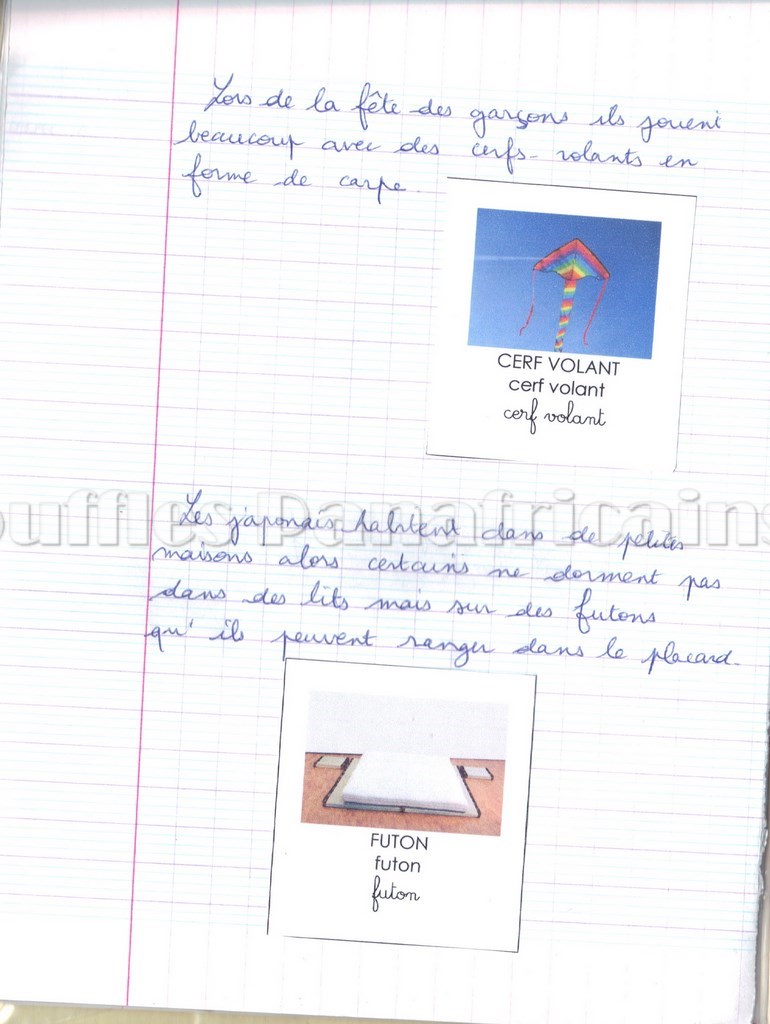 Lors de la fête des garçons ils jouent
beaucoup avec des cerfs-volants en
forme de carpe.
CERF VOLANT
cerf volant
cerf volant
ouffles Panafricains
Les japonais habitent dans de petites
maisons alors certains ne dorment pas
dans des lits mais sur des futons
qu'ils peuvent ranger dans le placard.
FUTON
futon
futon